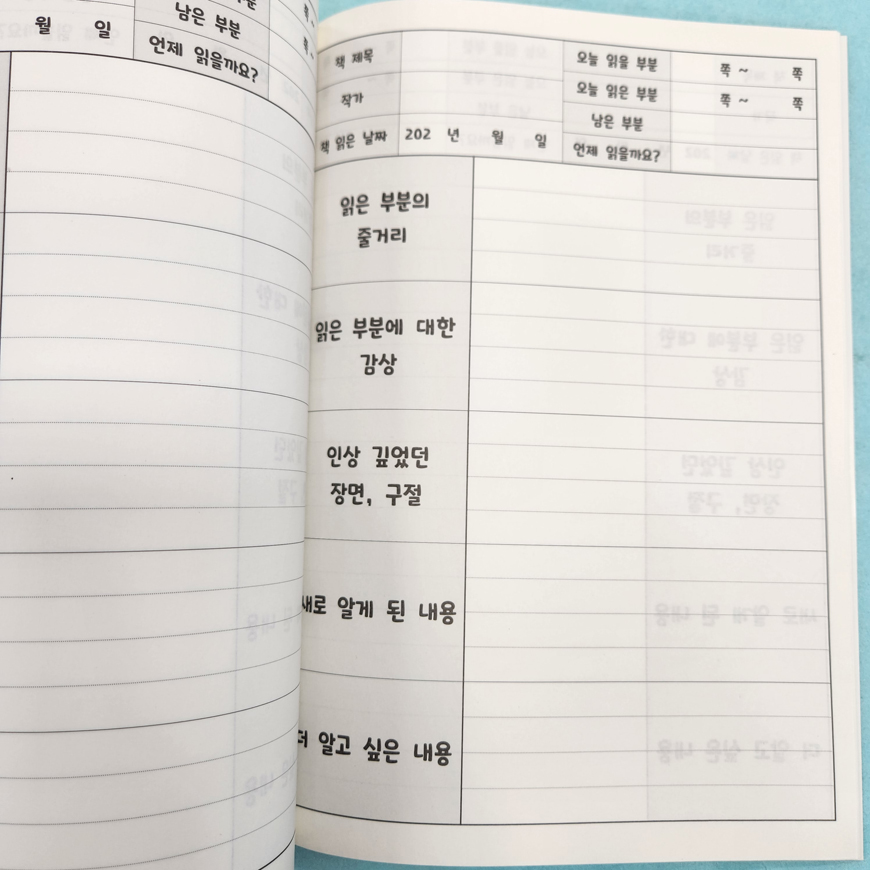 남은 부분
월 일
언제 읽을까요?
쪽 ~
쪽 ~
책 제목
오늘 읽을 부분
쪽 ~ 쪽
작가
오늘 읽은 부분
쪽 ~ 쪽
남은 부분
책 읽은 날짜
202 년 월 일
언제 읽을까요?
읽은 부분의
줄거리
읽은 부분에 대한
감상
인상 깊었던
장면, 구절
새로 알게 된 내용
더 알고 싶은 내용